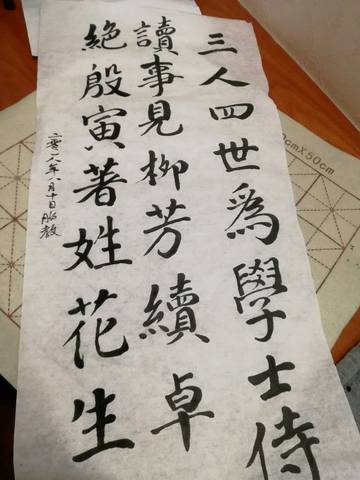 三人四世爲學士侍
讀事見柳芳續卓
絕殷寅著姓花生
二零一八年八月十日
cmX50cm